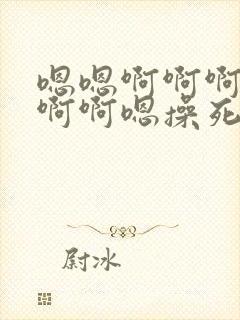 嗯嗯啊啊啊
啊啊嗯操死
尉冰